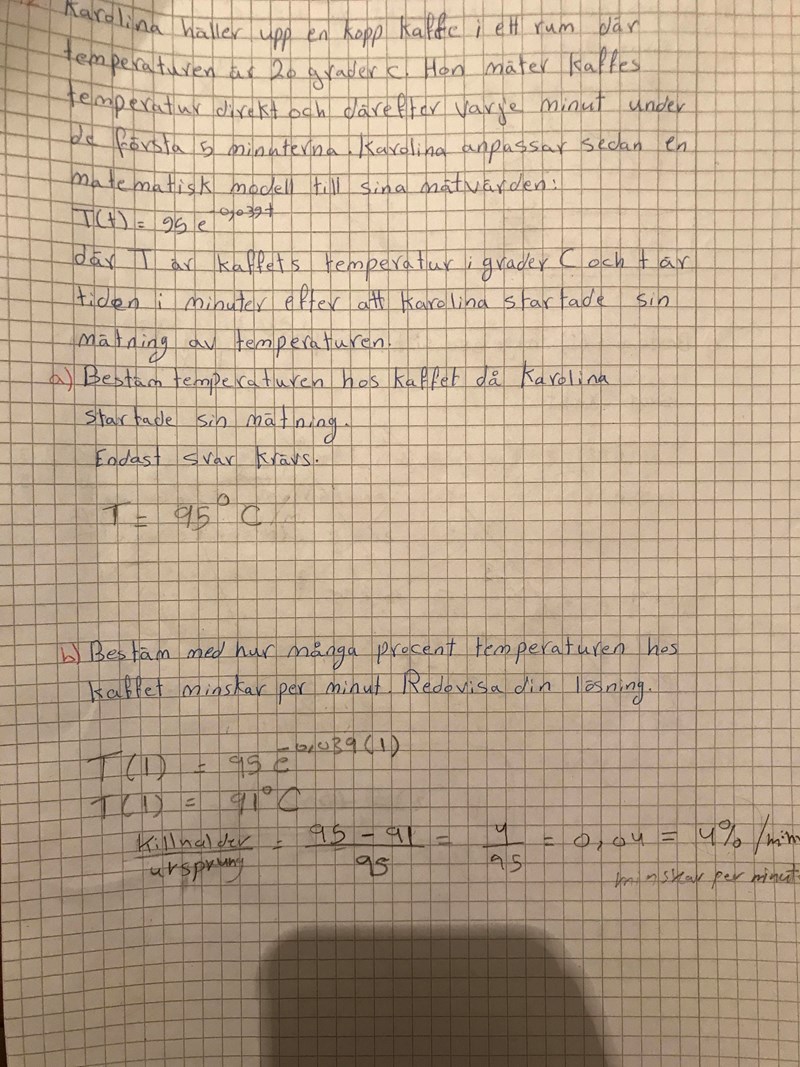 Karolina häller upp en kopp kaffe i ett rum där
temperaturen är 20 grader C. Hon mäter kaffes
temperatur direkt och därefter varje minut under
de första 5 minuterna. Karolina anpassar sedan en
matematisk modell till sina mätvärden:
T(t) = 95 e^-0,039t
där T är kaffets temperatur i grader C och t är
tiden i minuter efter att Karolina startade sin
mätning av temperaturen.
a) Bestäm temperaturen hos kaffet då Karolina
startade sin mätning.
Endast svar krävs.
T = 95° C
b) Bestäm med hur många procent temperaturen hos
kaffet minskar per minut. Redovisa din lösning.
T(1) = 95 e^-0,039(1)
T(1) = 91°C
/ursprung = 95 - 91/95 = 4/95 = 0,04 = 4% /min
minskar per minut